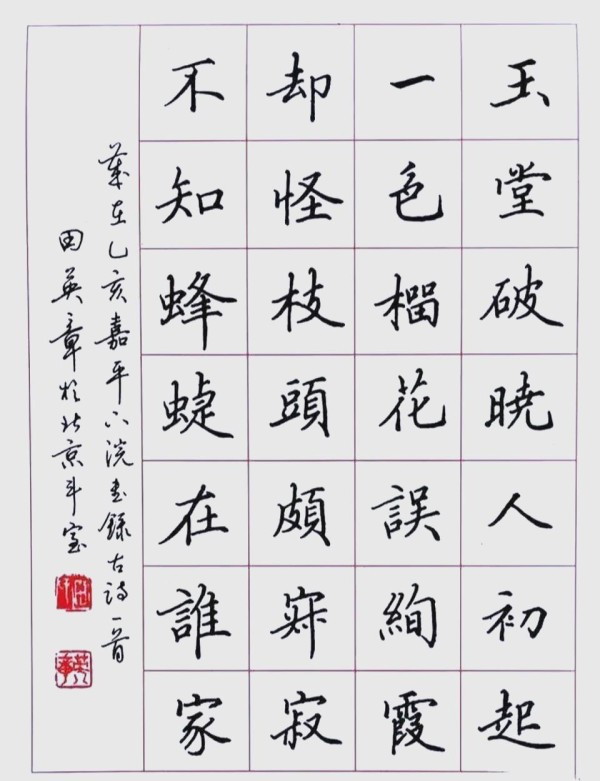 玉堂破曉人初起
一色榴花誤絢霞
却怪枝頭頗寂寂
不知蜂蜨在誰家
歲在乙亥嘉平下浣書錄古詩一首
田英章於北京斗室
英章